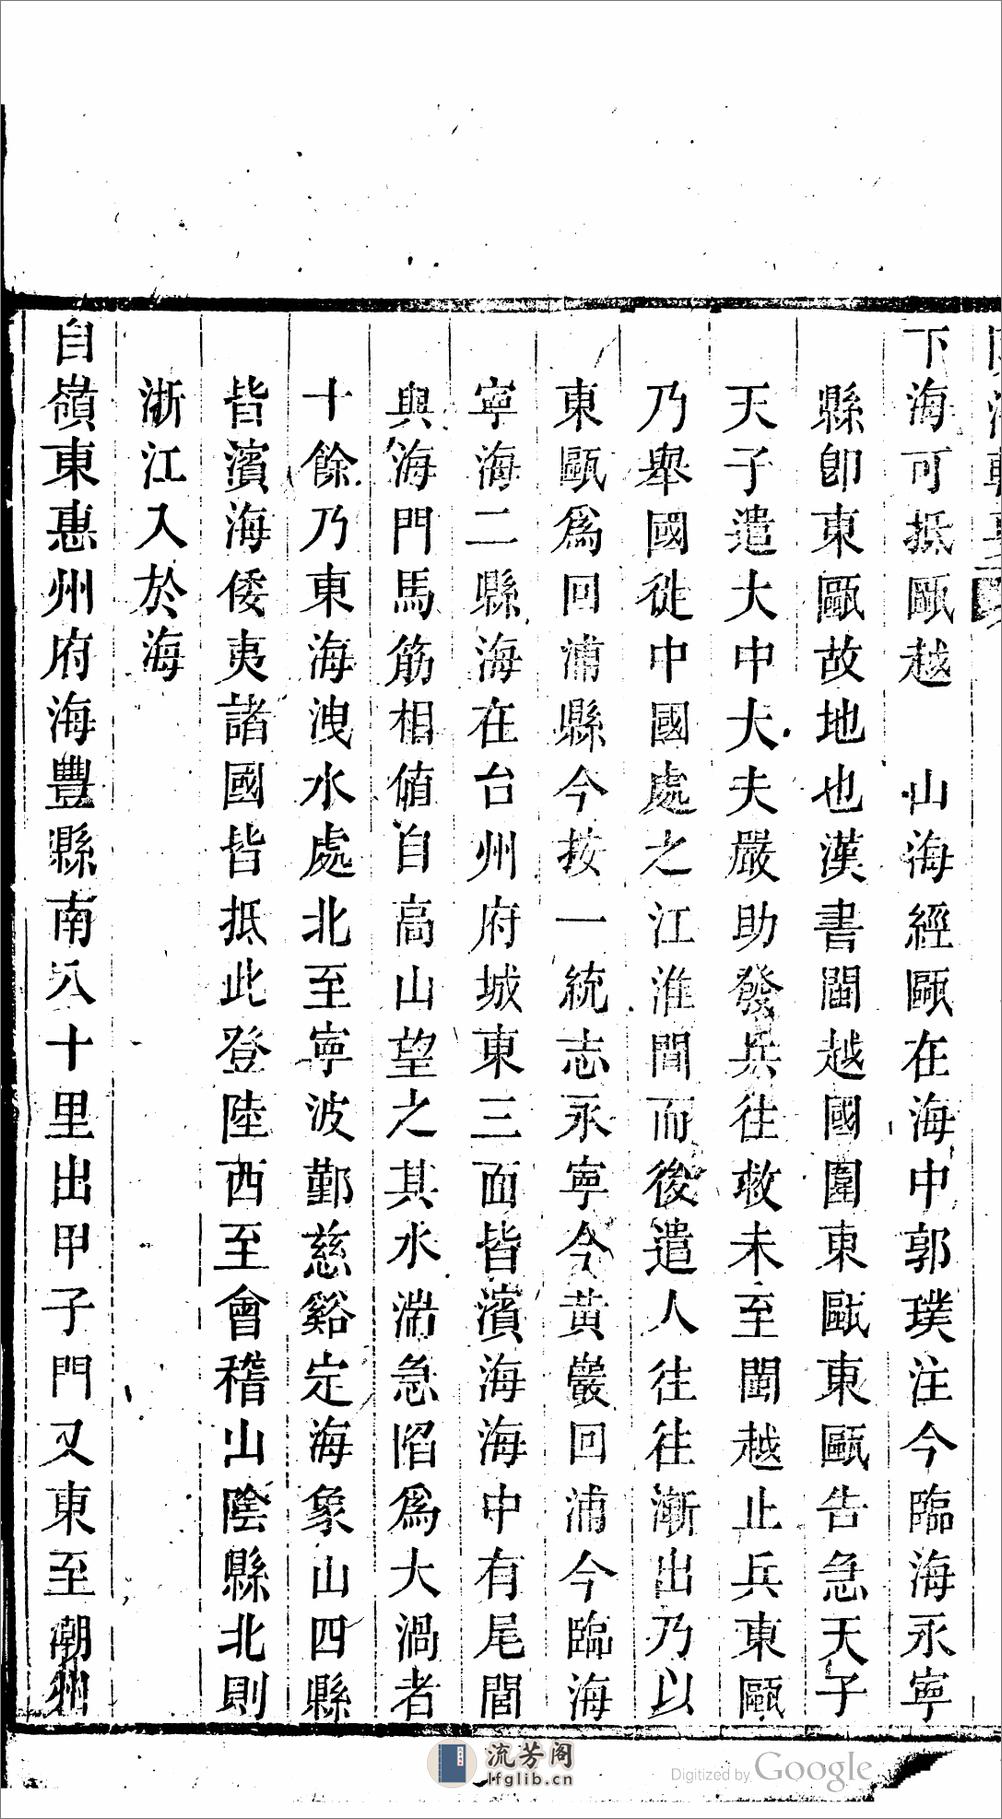 下海可抵甌越　山海經甌在海中郭璞注今臨海永寧
縣卽東甌故地也漢書閩越國圍東甌東甌告急天子
天子遣大中大夫嚴助發兵往救未至閩越止兵東甌
乃舉國徙中國處之江淮間而後遣人往往漸出乃以
東甌爲回浦縣今按一統志永寧今黃巖回浦今臨海
寧海二縣海在台州府城東三面皆濱海海中有尾閭
與海門馬筋相値自高山望之其水湍急陷爲大渦者
十餘乃東海洩水處北至寧波鄞慈谿定海象山四縣
皆濱海倭夷諸國皆抵此登陸西至會稽山陰縣北則
浙江入於海
自嶺東惠州府海豐縣南八十里出甲子門又東至潮州
流芳阁
lfglib.cn
Digitized by Google